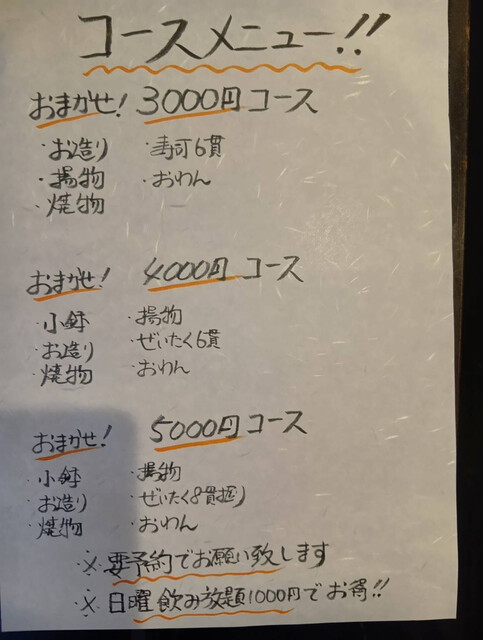 コースメニュー!!
おまかせ! 3000円コース
・お造り ・寿司6貫
・揚物 ・おわん
・焼物
おまかせ! 4000円コース
・小鉢 ・揚物
・お造り ・ぜいたく6貫
・焼物 ・おわん
おまかせ! 5000円コース
・小鉢 ・揚物
・お造り ・ぜいたく8貫握り
・焼物 ・おわん
※要予約でお願い致します
※日曜飲み放題1000円でお得!!